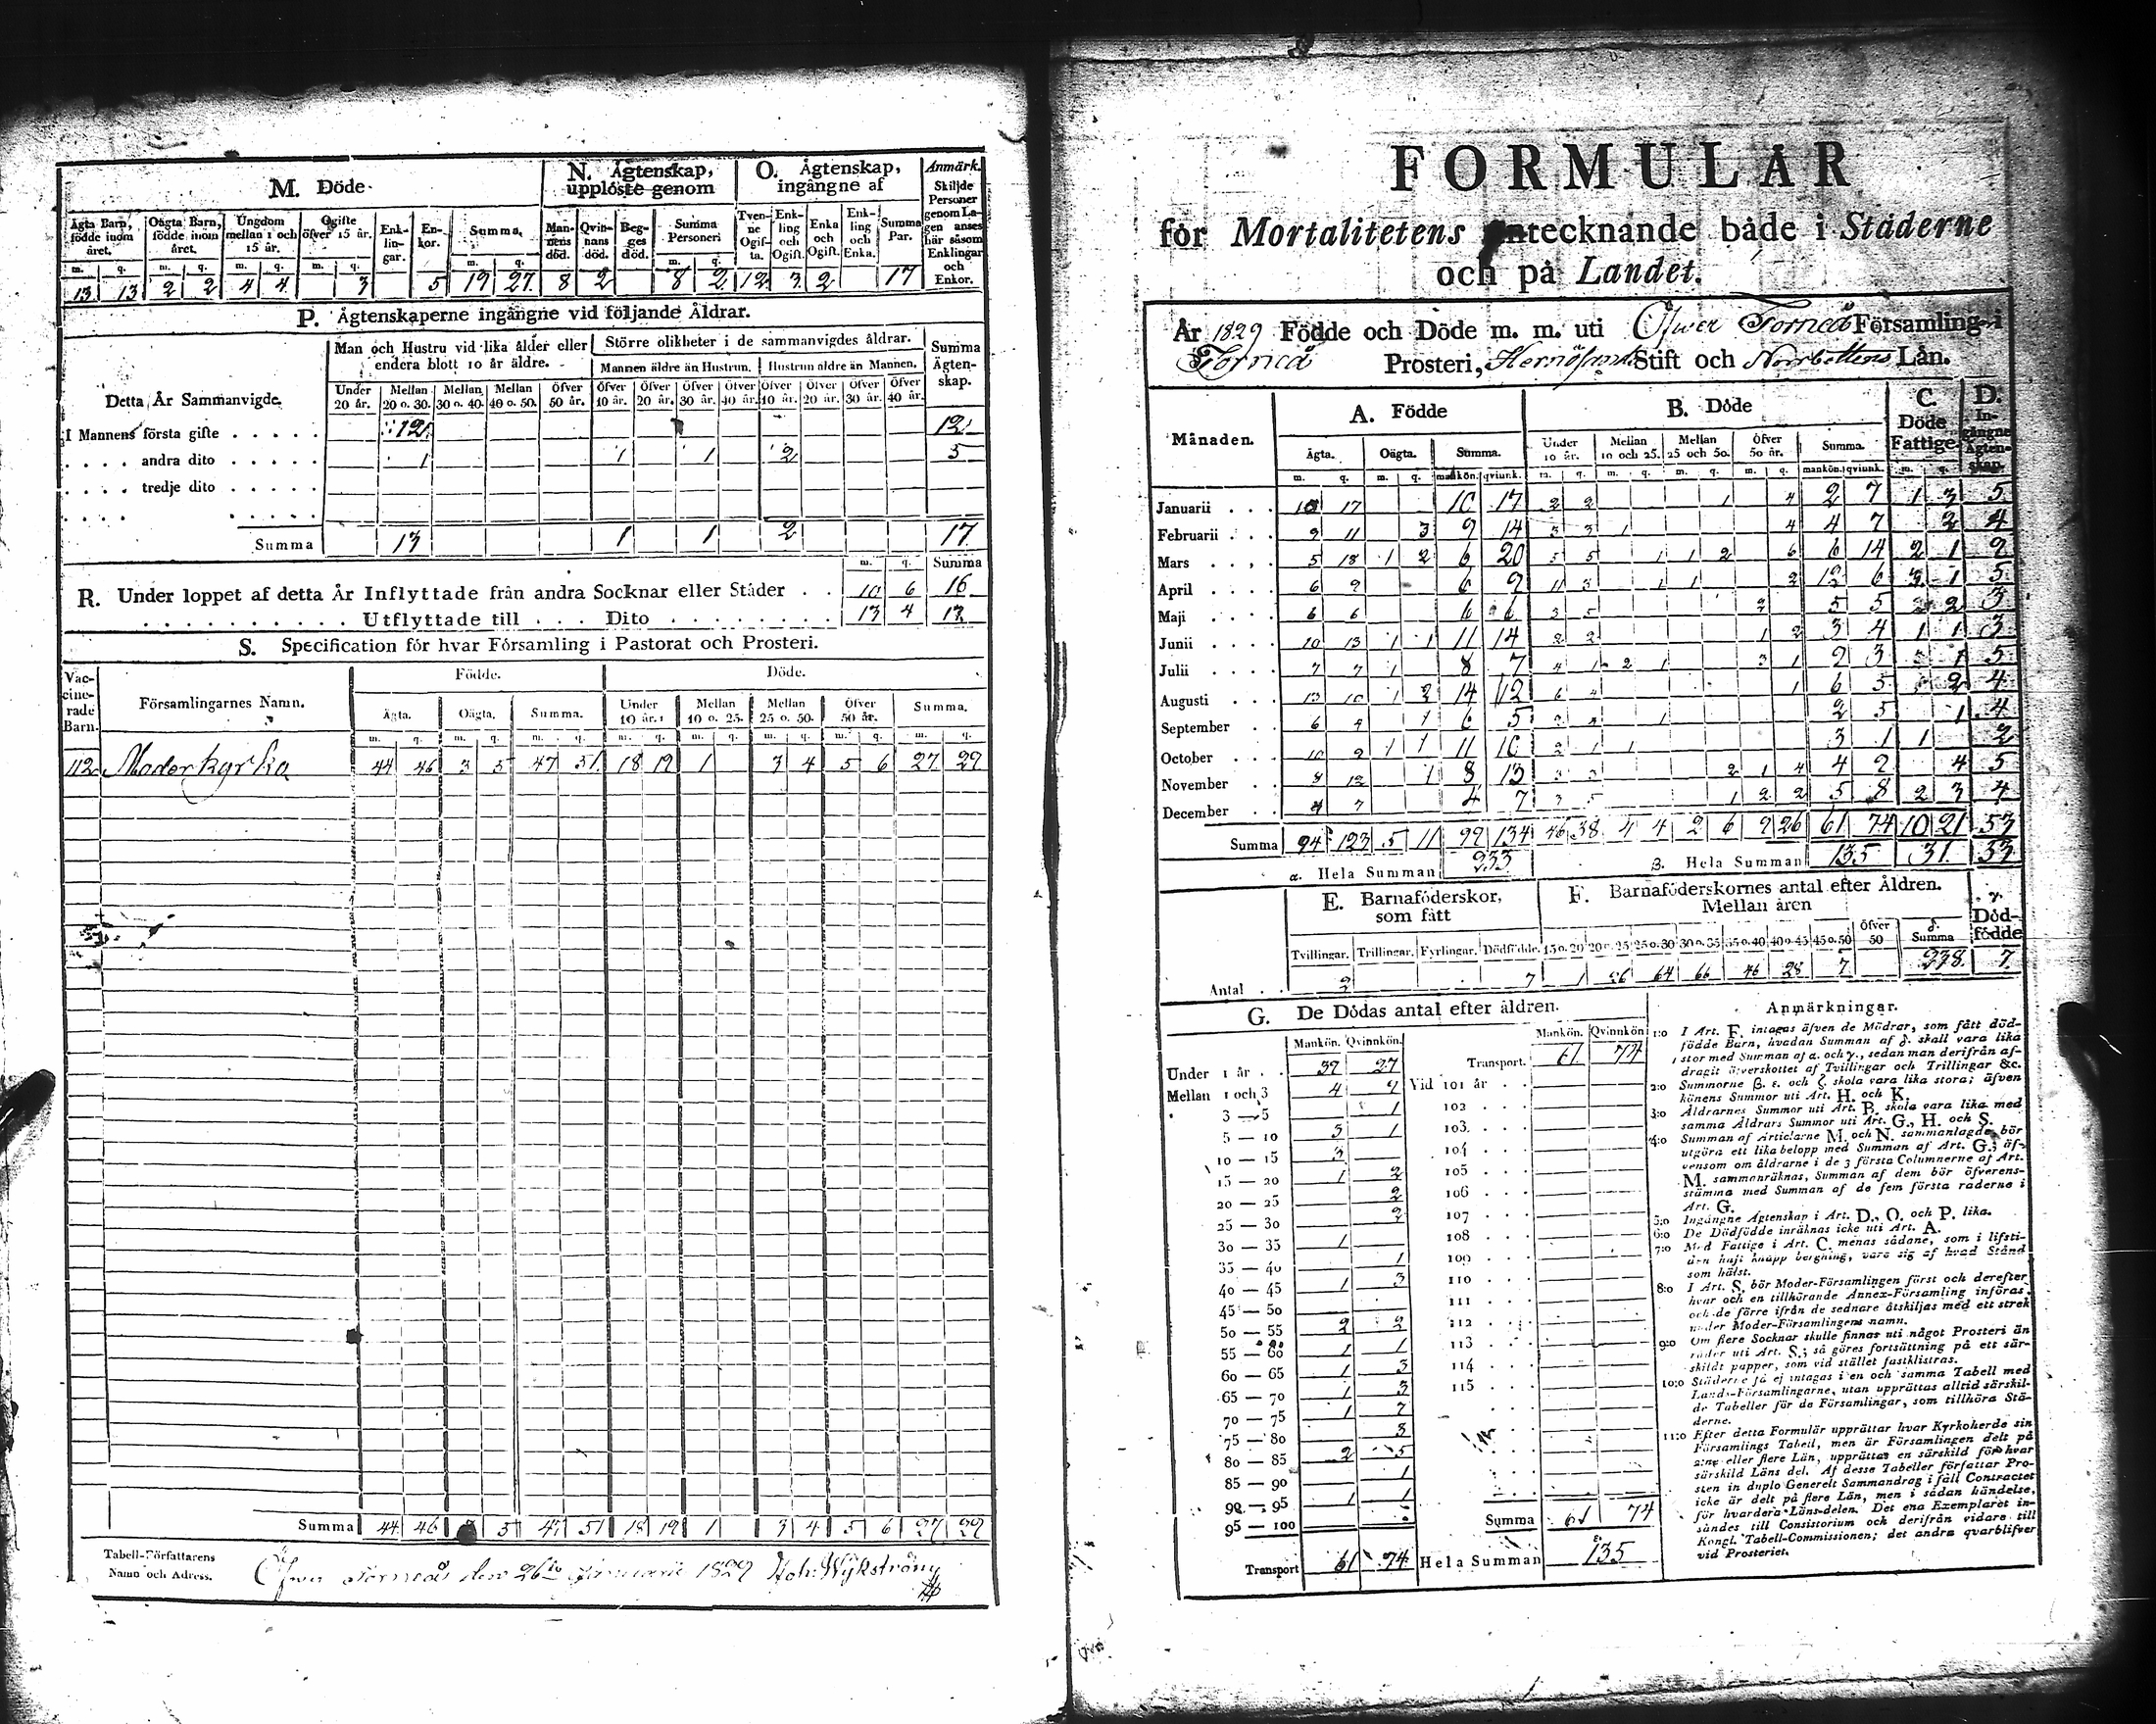 M. Döde.
N. Ägtenskap, upplöste genom
O. Ägtenskap, ingångne af
Anmärk. Skiljde Personer genom Lagen anses här såsom Enklingar och Enkor.
Ägta Barn, födde inom året.
Oägta Barn, födde inom året.
Ungdom mellan 1 och 15 år.
Ogifte öfver 15 år.
Enklingar.
Enkor.
Summa.
Mannens död.
Qvinnans död.
Begges död.
Summa Personer
Tvenne Ogifta.
Enkling och Ogift.
Enka och Ogift.
Enkling och Enka.
Summa Par.
m. q. m. q. m. q. m. q. m. q. m. q.
13 13 2 2 4 4 3 5 19 27 8 2 8 2 12 3 2 17
P. Ägtenskaperne ingångne vid följande Åldrar.
Detta År Sammanvigde.
Man och Hustru vid lika ålder eller endera blott 10 år äldre.
Större olikheter i de sammanvigdes åldrar.
Mannen äldre än Hustrun. Hustrun äldre än Mannen.
Summa Ägtenskap.
Under 20 år. Mellan 20 o. 30. Mellan 30 o. 40. Mellan 40 o. 50. Öfver 50 år. Öfver 10 år. Öfver 20 år. Öfver 30 år. Öfver 40 år. Öfver 10 år. Öfver 20 år. Öfver 30 år. Öfver 40 år.
I Mannens första gifte . . . . . 12 12
. . . . andra dito . . . . . 1 1 1 2 5
. . . . tredje dito . . . . .
Summa 13 1 1 2 17
m. q. Summa
R. Under loppet af detta År Inflyttade från andra Socknar eller Städer . . 10 6 16
. . . . . . . . . . Utflyttade till . . . Dito . . . . . . . . 13 4
S. Specification för hvar Församling i Pastorat och Prosteri.
Vaccinerade Barn.
Församlingarnes Namn.
Födde.
Döde.
Ägta. Oägta. Summa.
Under 10 år. Mellan 10 o. 25. Mellan 25 o. 50. Öfver 50 år. Summa.
m. q. m. q. m. q. m. q. m. q. m. q. m. q. m. q.
112 Moderkyrka 44 46 3 5 47 51 18 19 1 3 4 5 6 27 29
Summa 44 46 5 47 51 18 19 1 3 4 5 6 27 29
Tabell-Författarens Namn och Adress.
Öfwer Torneå den 26te Januarii 1829 Joh: Wykström
FORMULAR
för Mortalitetens Antecknande både i Städerne
och på Landet.
År 1829 Födde och Döde m. m. uti Öfwer Torneå Församling i
Torneå Prosteri, Hernösands Stift och Norrbottens Län.
Månaden.
A. Födde
B. Döde
C. Döde Fattige.
D. Ingångne Ägtenskap.
Ägta. Oägta. Summa.
Under 10 år. Mellan 10 och 25. Mellan 25 och 50. Öfver 50 år. Summa.
m. q. m. q. mankön. qvink. m. q. m. q. m. q. m. q. mankön. qvink. m. q.
Januarii . . . 10 17 10 17 2 2 1 4 2 7 1 3 5
Februarii . . . 9 11 3 9 14 3 3 1 4 4 7 2 4
Mars . . . . 5 18 1 2 6 20 5 5 1 1 2 6 6 14 2 1 9
April . . . . 6 9 6 9 11 3 1 1 2 12 6 3 1 5
Maji . . . . 6 6 6 6 3 5 2 5 5 2 2 3
Junii . . . . 10 13 1 1 11 14 2 2 1 2 3 4 1 1 3
Julii . . . . 7 7 1 8 7 4 1 2 1 3 1 9 3 1 5
Augusti . . . 13 10 1 2 14 12 6 4 1 6 5 2 4
September . . 6 4 1 6 5 2 4 1 2 5 1 4
October . . . 10 9 1 1 11 10 2 1 1 3 1 1 2
November . . 8 12 1 8 13 2 1 4 4 9 4 5
December . . 4 7 4 7 3 5 1 2 2 5 8 2 3 4
Summa 94 123 5 11 99 134 46 38 4 4 2 6 9 26 61 74 10 21 53
α. Hela Summan 233
β. Hela Summan 135 31 53
E. Barnaföderskor, som fått
F. Barnaföderskornes antal efter Åldren. Mellan åren
γ. Dödfödde
Tvillingar. Trillingar. Fyrlingar. Dödfödde. 15 o. 20 20 o. 25 25 o. 30 30 o. 35 35 o. 40 40 o. 45 45 o. 50 Öfver 50 δ. Summa
Antal . . 2 7 1 26 64 66 46 28 7 238 7
G. De Dödas antal efter åldren.
Mankön. Qvinnkön.
Under 1 år . . 37 27
Mellan 1 och 3 4 9
3 — 5 1
5 — 10 5 1
10 — 15 3
15 — 20 1 2
20 — 25 2
25 — 30 2
30 — 35 1
35 — 40 1
40 — 45 1 3
45 — 50
50 — 55 2 2
55 — 60 1 1
60 — 65 1 3
65 — 70 1 3
70 — 75 1 7
75 — 80 3
80 — 85 2 5
85 — 90 1
90 — 95 1 1
95 — 100
Transport 61 74
Mankön. Qvinnkön
Transport. 61 74
Vid 101 år . .
102 . . .
103 . . .
104 . . .
105 . . .
106 . . .
107 . . .
108 . . .
109 . . .
110 . . .
111 . . .
112 . . .
113 . . .
114 . . .
115 . . .
Summa 61 74
Hela Summan 135
Anmärkningar.
1:o I Art. F. intagas äfven de Mödrar, som fått död-
födde Barn, hvadan Summan af δ. skall vara lika
stor med Summan af α. och γ., sedan man derifrån af-
dragit öfverskottet af Tvillingar och Trillingar &c.
2:o Summorne β. ε. och ζ. skola vara lika stora; äfven
könens Summor uti Art. H. och K.
3:o Åldrarnes Summor uti Art. B. skola vara lika med
samma Åldrars Summor uti Art. G., H. och S.
4:o Summan af Articlarne M. och N. sammanlagde bör
utgöra ett lika belopp med Summan af Art. G.; äf-
vensom om åldrarne i de 3 första Columnerne af Art.
M. sammanräknas, Summan af dem bör öfverens-
stämma med Summan af de fem första raderne i
Art. G.
5:o Ingångne Ägtenskap i Art. D., O. och P. lika.
6:o De Dödfödde inräknas icke uti Art. A.
7:o Med Fattige i Art. C. menas sådane, som i lifsti-
den haft knapp bergning, vare sig af hvad Stånd
som hälst.
8:o I Art. S. bör Moder-Församlingen först och derefter
hvar och en tillhörande Annex-Församling införas,
och de förre ifrån de sednare åtskiljas med ett strek
under Moder-Församlingens namn.
9:o Om flere Socknar skulle finnas uti något Prosteri än
rader uti Art. S.; så göres fortsättning på ett sär-
skildt papper, som vid stället fastklistras.
10:o Städerne få ej intagas i en och samma Tabell med
Lands-Församlingarne, utan upprättas alltid särskil-
de Tabeller för de Församlingar, som tillhöra Stä-
derne.
11:o Efter detta Formulär upprättar hvar Kyrkoherde sin
Församlings Tabell, men är Församlingen delt på
tvenne eller flere Län, upprättas en särskild för hvar
särskild Läns del. Af desse Tabeller författar Pro-
sten in duplo Generelt Sammandrag i fall Contractet
icke är delt på flere Län, men i sådan händelse,
för hvardera Läns-delen. Det ena Exemplaret in-
sändes till Consistorium och derifrån vidare till
Kongl. Tabell-Commissionen; det andra qvarblifver
vid Prosteriet.